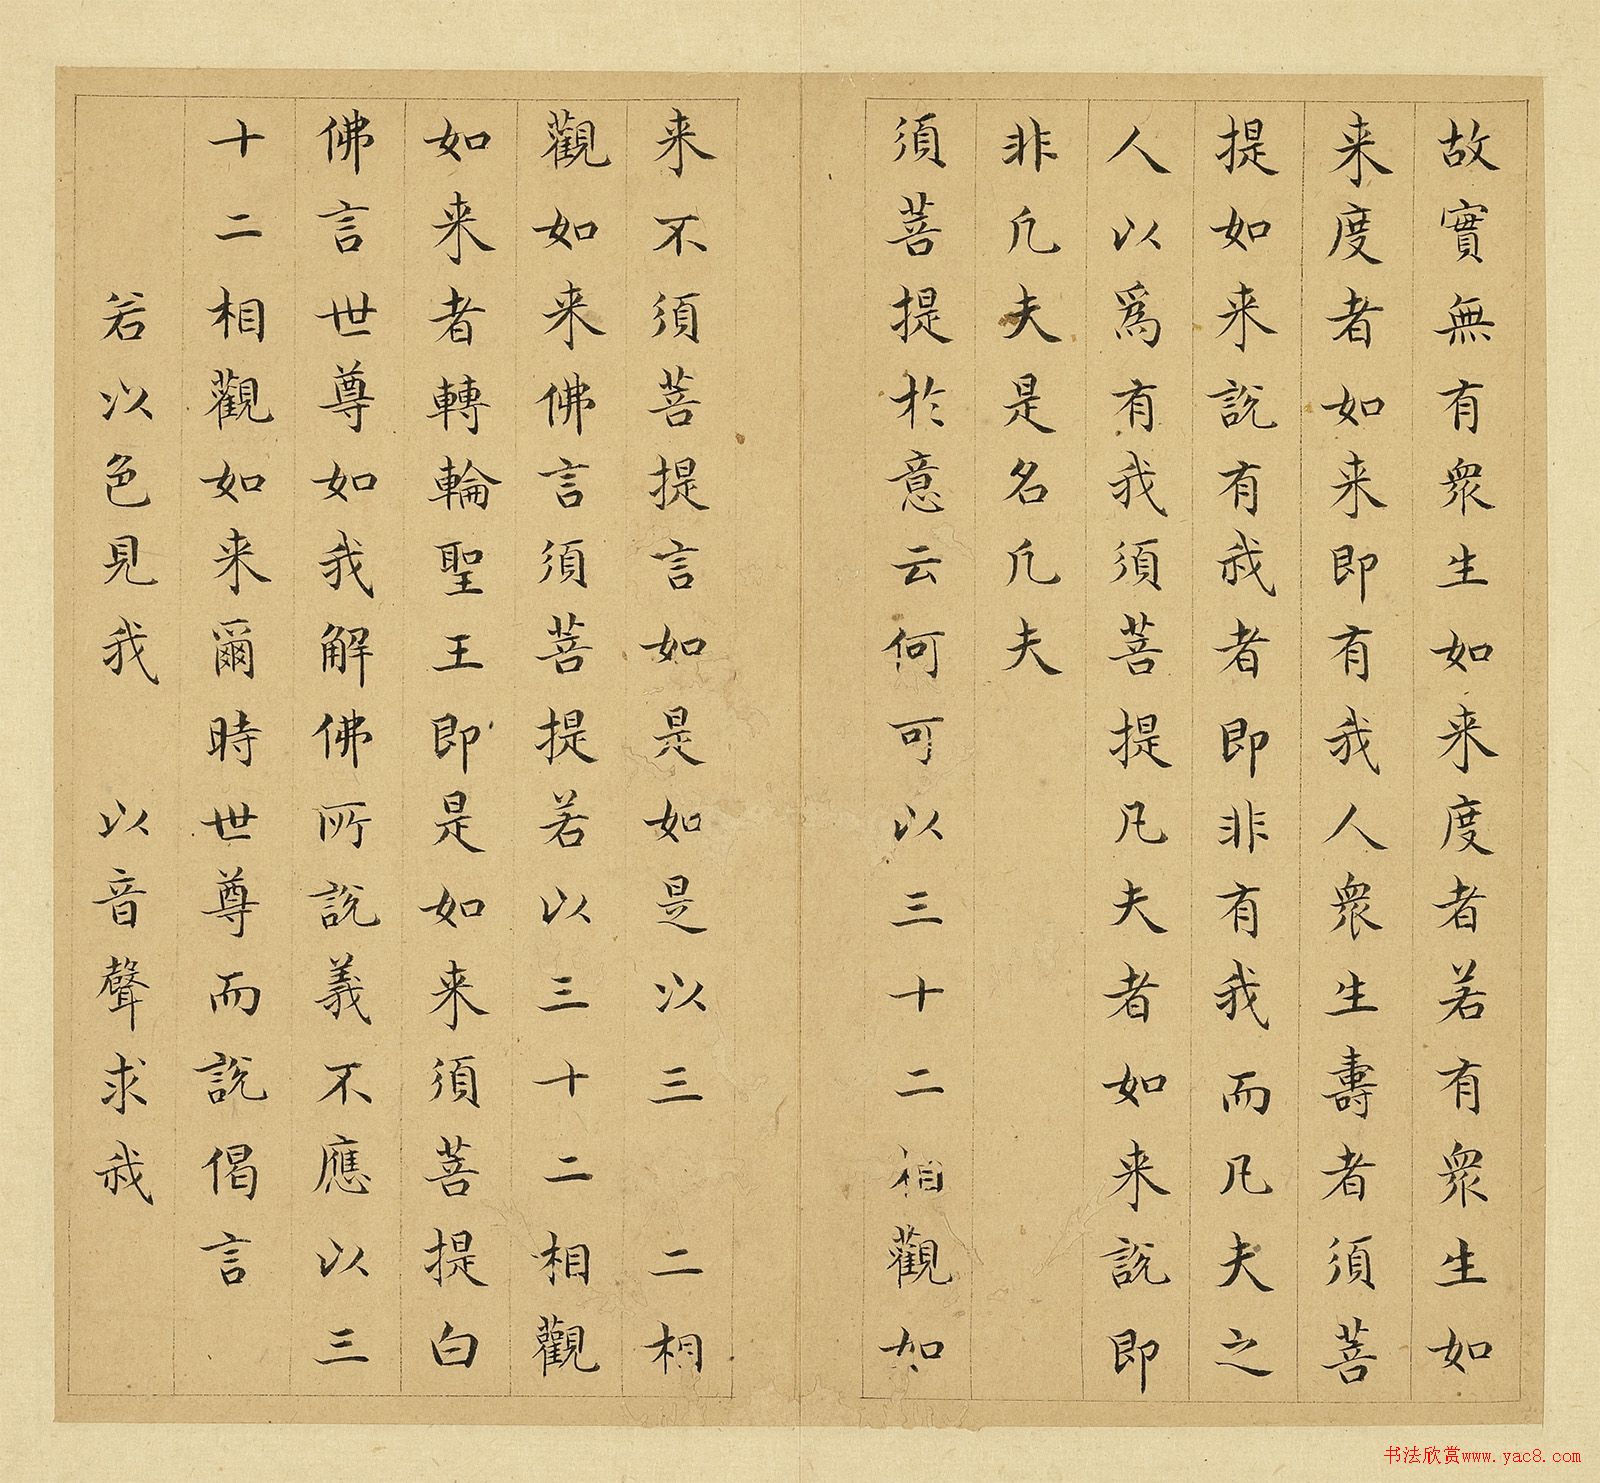 故實無有衆生如来度者若有衆生如
来度者如来即有我人衆生壽者須菩
提如来說有我者即非有我而凡夫之
人以爲有我須菩提凡夫者如来說即
非凡夫是名凡夫
須菩提於意云何可以三十二相觀如
来不須菩提言如是如是以三二相
觀如来佛言須菩提若以三十二相觀
如来者轉輪聖王即是如来須菩提白
佛言世尊如我解佛所說義不應以三
十二相觀如来爾時世尊而說偈言
若以色見我 以音聲求我
书法欣赏www.yac8.com